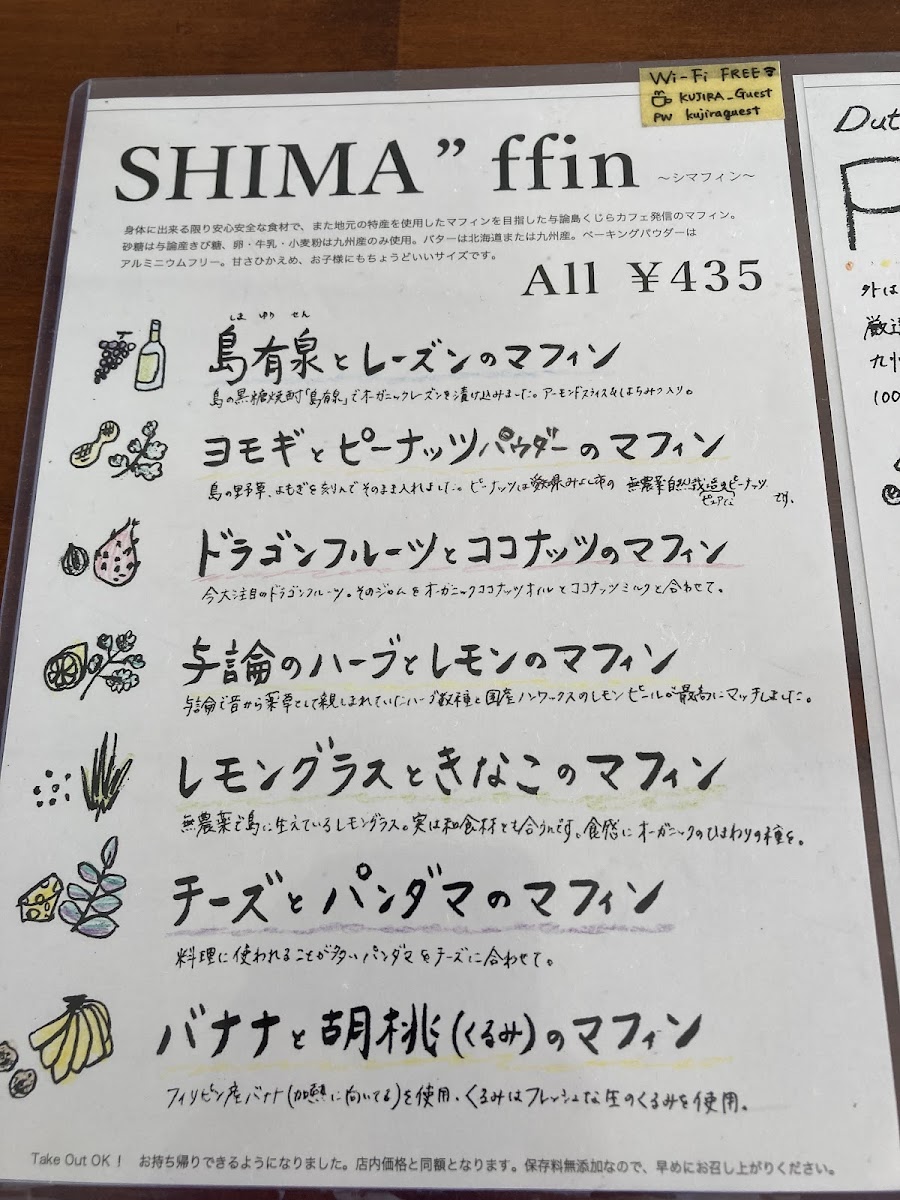 Wi-Fi FREE
KUJIRA_Guest
PW kujiraguest
SHIMA”ffin ～シマフィン～
身体に出来る限り安心安全な食材で、また地元の特産を使用したマフィンを目指した与論島くじらカフェ発信のマフィン。
砂糖は与論産きび糖、卵・牛乳・小麦粉は九州産のみ使用。バターは北海道または九州産。ベーキングパウダーは
アルミニウムフリー。甘さひかえめ、お子様にもちょうどいいサイズです。
All ¥435
しま ゆう せん
島有泉とレーズンのマフィン
島の黒糖焼酎「島有泉」でオーガニックレーズンを漬け込みました。アーモンドスライス&はちみつ入り。
ヨモギとピーナッツパウダーのマフィン
島の野草、よもぎを刻んでそのまま入れました。ピーナッツは愛知県みよし市の 無農薬自然栽培ピーナッツ です。
ドラゴンフルーツとココナッツのマフィン
今大注目のドラゴンフルーツ。そのジャムをオーガニックココナッツオイルとココナッツミルクと合わせて。
与論のハーブとレモンのマフィン
与論で昔から薬草として親しまれていたハーブ数種と国産ノンワックスのレモンピールが最高にマッチしました。
レモングラスときなこのマフィン
無農薬で島に生えているレモングラス。実は和食材とも合うんです。食感にオーガニックのひまわりの種を。
チーズとパンダマのマフィン
料理に使われることが多いパンダマをチーズに合わせて。
バナナと胡桃(くるみ)のマフィン
フィリピン産バナナ(加熱に向いてる)を使用、くるみはフレッシュな生のくるみを使用。
Take Out OK！ お持ち帰りできるようになりました。店内価格と同額となります。保存料無添加なので、早めにお召し上がりください。
Dut
P
外は
厳選
九州
100